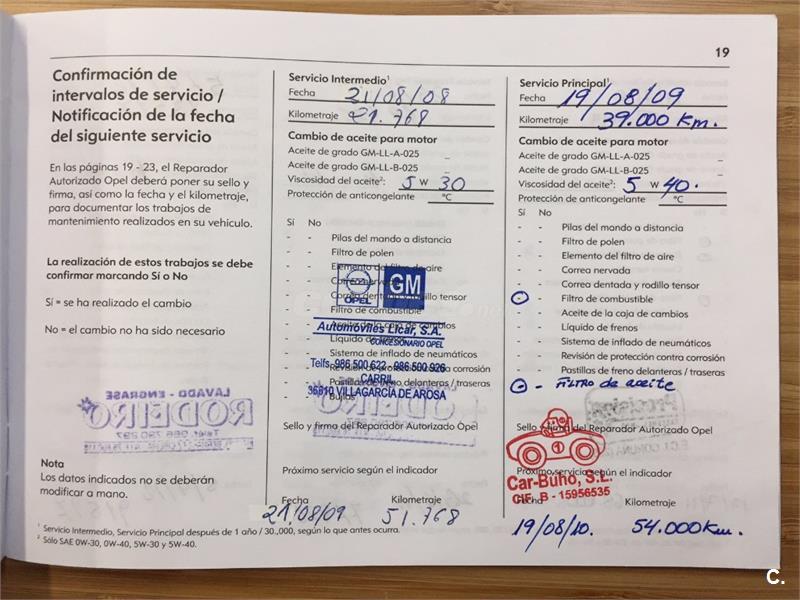 19
Confirmación de
intervalos de servicio /
Notificación de la fecha
del siguiente servicio
En las páginas 19 - 23, el Reparador
Autorizado Opel deberá poner su sello y
firma, así como la fecha y el kilometraje,
para documentar los trabajos de
mantenimiento realizados en su vehículo.
La realización de estos trabajos se debe
confirmar marcando Sí o No
Sí = se ha realizado el cambio
No = el cambio no ha sido necesario
LAVADO - ENGRASE
RODEIRO
Nota
Los datos indicados no se deberán
modificar a mano.
Servicio Intermedio¹
Fecha 21/08/08
Kilometraje 21.768
Cambio de aceite para motor
Aceite de grado GM-LL-A-025 _
Aceite de grado GM-LL-B-025 _
Viscosidad del aceite²: 5 W 30
Protección de anticongelante °C
Sí No
- - Pilas del mando a distancia
- - Filtro de polen
- - Elemento del filtro de aire
- - Correa nervada
- - Correa dentada y rodillo tensor
- - Filtro de combustible
- - Aceite de la caja de cambios
- - Líquido de frenos
- - Sistema de inflado de neumáticos
- - Revisión de protección contra corrosión
- - Pastillas de freno delanteras / traseras
- - Bujías
OPEL GM
Automóviles Licar, S.A.
CONCESIONARIO OPEL
Telfs. 986 500 622 - 986 500 926
CARRIL
36610 VILLAGARCÍA DE AROSA
Sello y firma del Reparador Autorizado Opel
Próximo servicio según el indicador
Fecha Kilometraje
21/08/09 51.768
Servicio Principal¹
Fecha 19/08/09
Kilometraje 39.000 Km.
Cambio de aceite para motor
Aceite de grado GM-LL-A-025 _
Aceite de grado GM-LL-B-025 _
Viscosidad del aceite²: 5 W 40.
Protección de anticongelante °C
Sí No
- - Pilas del mando a distancia
- - Filtro de polen
- - Elemento del filtro de aire
- - Correa nervada
- - Correa dentada y rodillo tensor
- - Filtro de combustible
- - Aceite de la caja de cambios
- - Líquido de frenos
- - Sistema de inflado de neumáticos
- - Revisión de protección contra corrosión
- - Pastillas de freno delanteras / traseras
- - FILTRO de aceite
Sello y firma del Reparador Autorizado Opel
1
Car-Buho, S.L.
CIF. B - 15956535
Próximo servicio según el indicador
Fecha Kilometraje
19/08/10. 54.000Km.
¹ Servicio Intermedio, Servicio Principal después de 1 año / 30.,000, según lo que antes ocurra.
² Sólo SAE 0W-30, 0W-40, 5W-30 y 5W-40.
C.